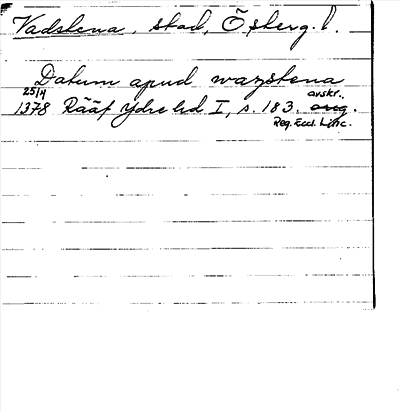 Vadstena, stad, Österg. l.
Datum apud wazstena
25/4 avskr.,
1378 Rääf Ydre hd I, s. 183. orig.
Reg. Eccl. Linc.